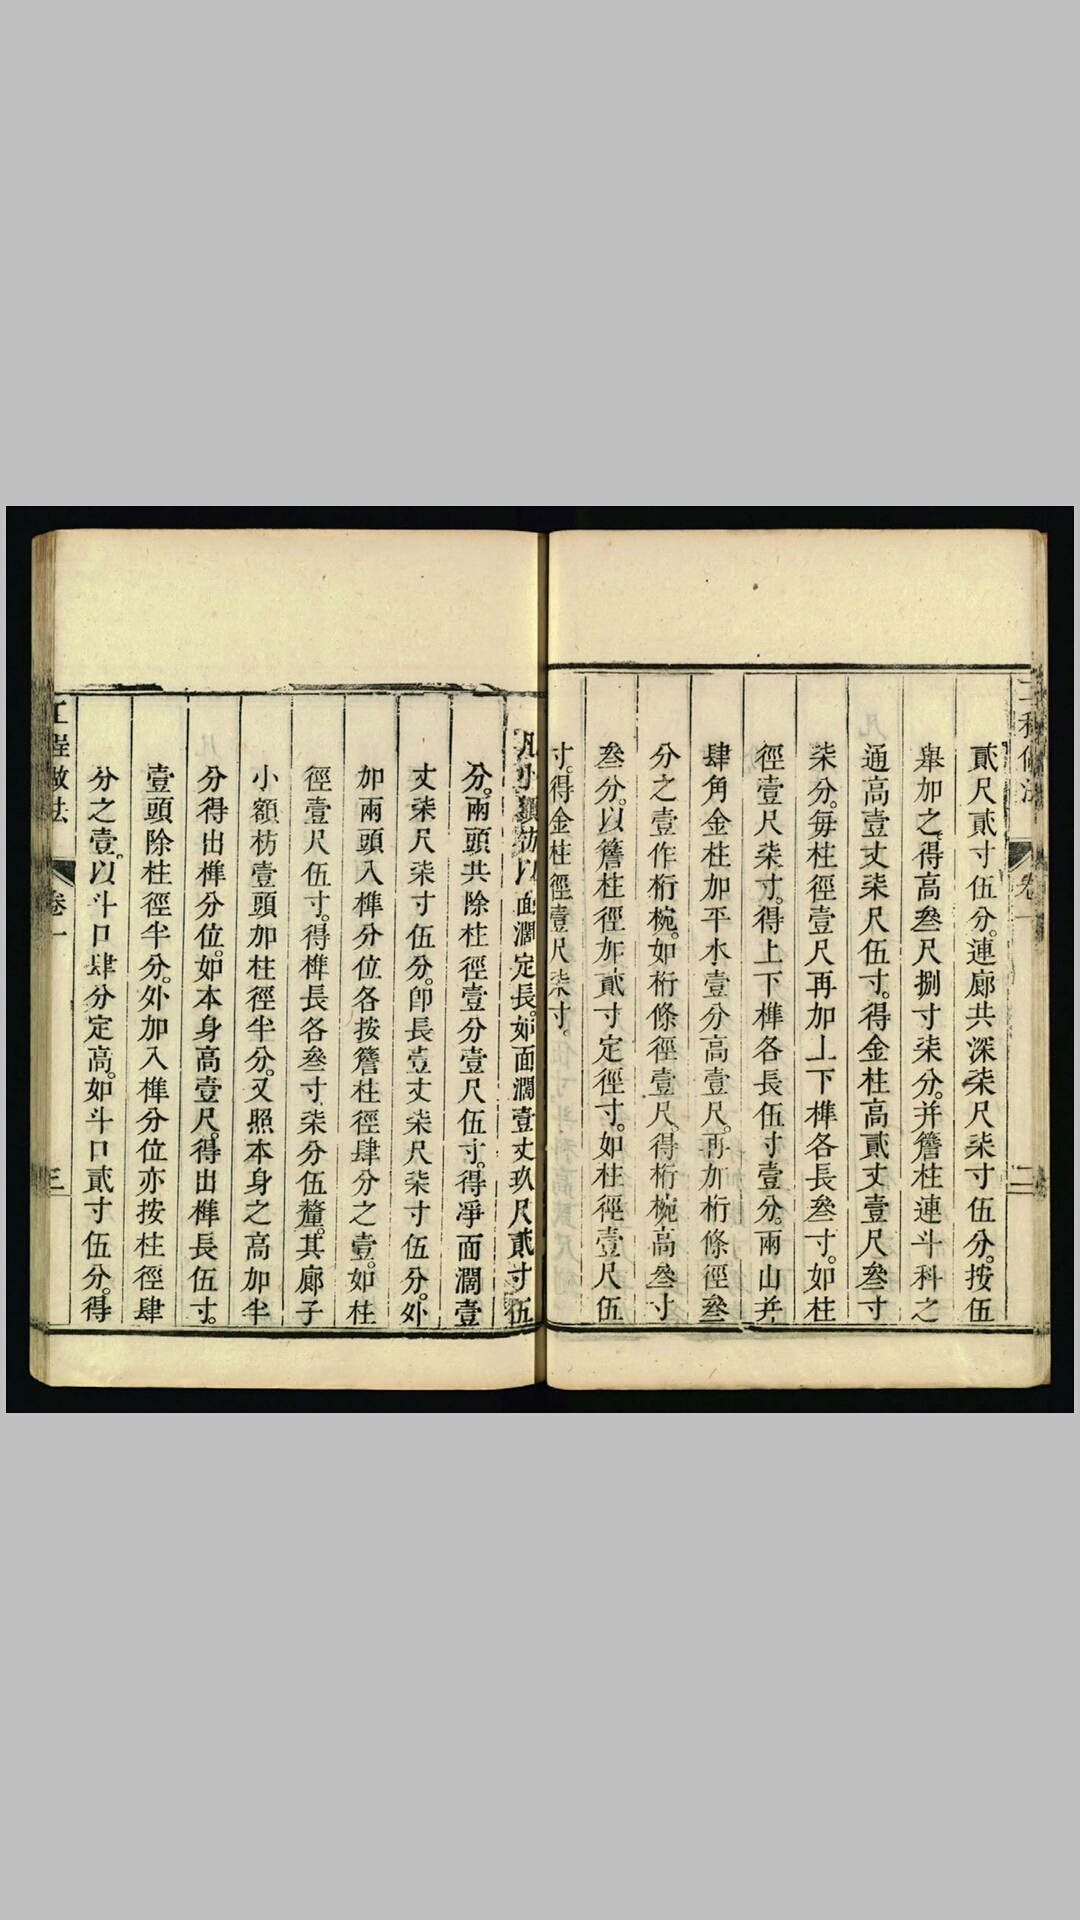 貳尺貳寸伍分。連廊共深柒尺柒寸伍分。按伍
舉加之。得高叁尺捌寸柒分。并簷柱連斗科之
通高壹丈柒尺伍寸。得金柱高貳丈壹尺叁寸
柒分。每柱徑壹尺再加上下榫各長叁寸。如柱
徑壹尺柒寸。得上下榫各長伍寸壹分。兩山并
肆角金柱加平水壹分高壹尺。再加桁條徑叁
分之壹作桁椀。如桁條徑壹尺。得桁椀高叁寸
叁分。以簷柱徑加貳寸定徑寸。如柱徑壹尺伍
寸。得金柱徑壹尺柒寸。
凡小額枋以面濶定長。如面濶壹丈玖尺貳寸伍
分。兩頭共除柱徑壹分壹尺伍寸。得凈面濶壹
丈柒尺柒寸伍分。卽長壹丈柒尺柒寸伍分。外
加兩頭入榫分位各按簷柱徑肆分之壹。如柱
徑壹尺伍寸。得榫長各叁寸柒分伍釐。其廊子
小額枋壹頭加柱徑半分。又照本身之高加半
分得出榫分位。如本身高壹尺。得出榫長伍寸。
壹頭除柱徑半分。外加入榫分位亦按柱徑肆
分之壹。以斗口肆分定高。如斗口貳寸伍分。得
工程做法 卷一 三